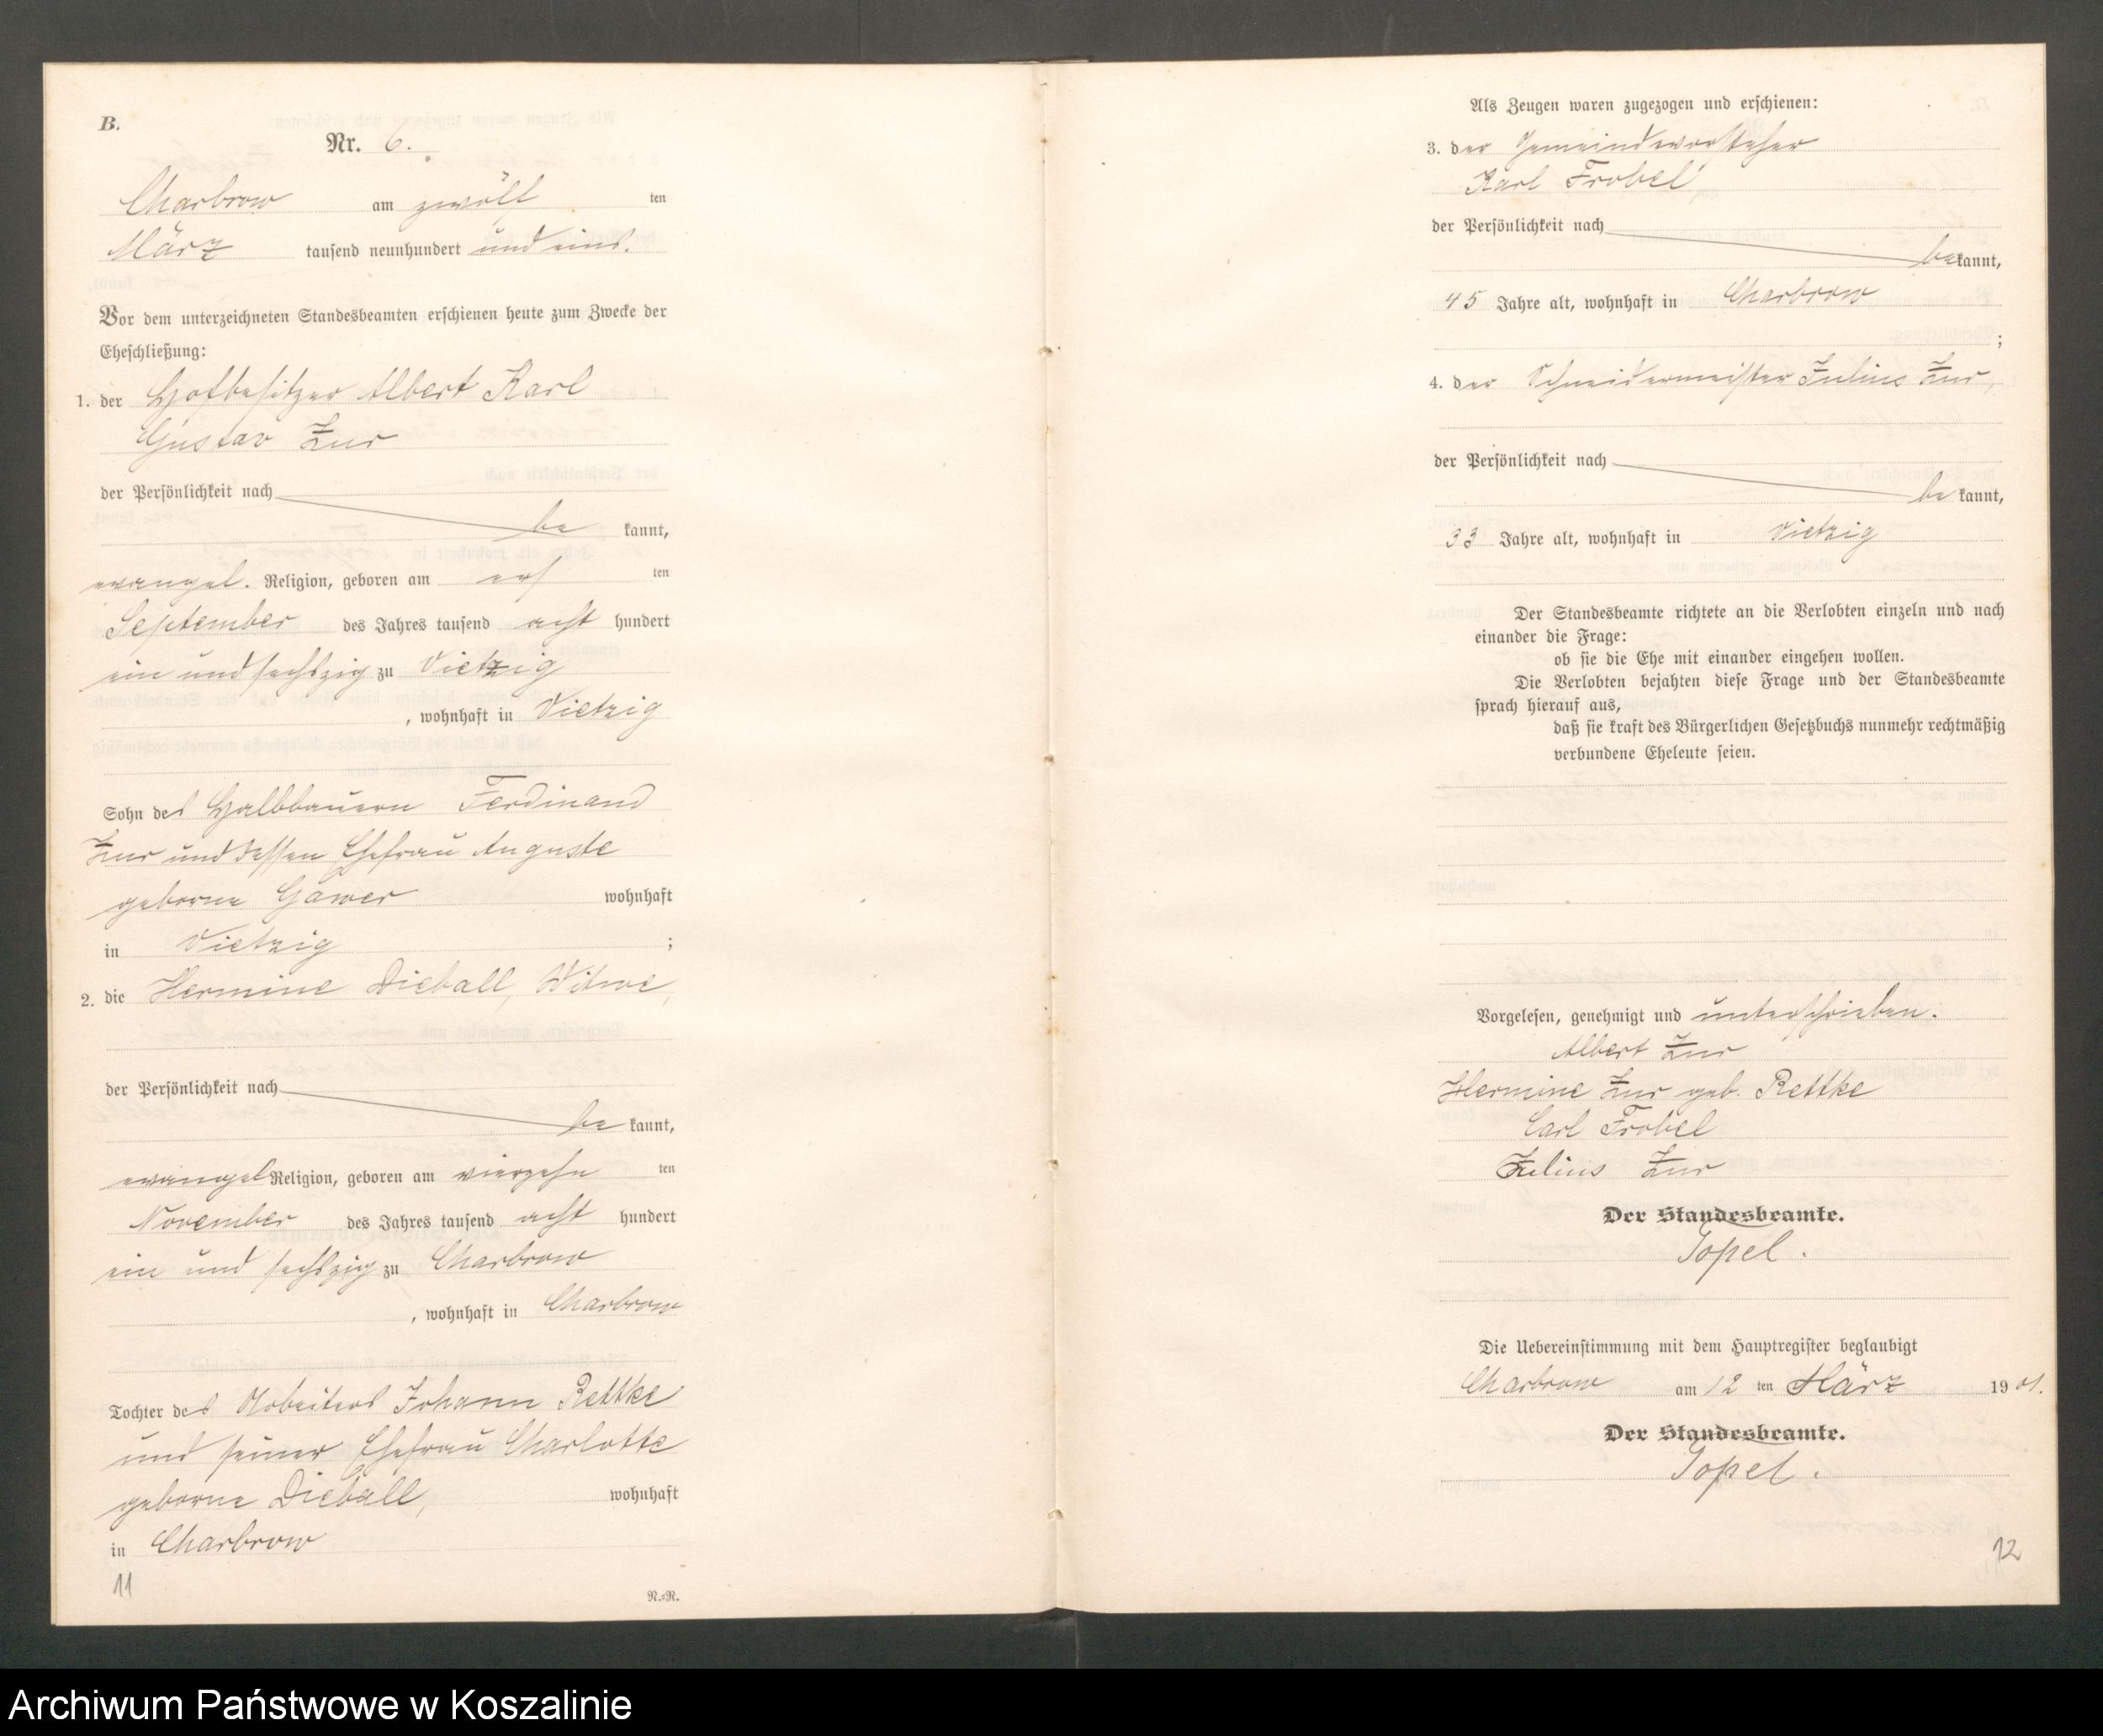 B.
Nr. 6.
Charbrow am zwölf ten
März tausend neunhundert und eins.
Vor dem unterzeichneten Standesbeamten erschienen heute zum Zwecke der
Eheschließung:
1. der Hofbesitzer Albert Karl
Gustav Zur
der Persönlichkeit nach
be kannt,
evangel. Religion, geboren am ers ten
September des Jahres tausend acht hundert
ein und sechszig zu Vietzig
, wohnhaft in Vietzig
Sohn des Halbbauern Ferdinand
Zur und dessen Ehefrau Auguste
geborne Gawer wohnhaft
in Vietzig ;
2. die Hermine Dieball, Witwe,
der Persönlichkeit nach
be kannt,
evangel Religion, geboren am vierzehn ten
November des Jahres tausend acht hundert
ein und sechszig zu Charbrow
, wohnhaft in Charbrow
Tochter des Arbeiters Johann Rettke
und seiner Ehefrau Charlotte
geborne Dieball, wohnhaft
in Charbrow
11
R.=R.
Als Zeugen waren zugezogen und erschienen:
3. der Gemeindevorsteher
Karl Frobel,
der Persönlichkeit nach
bekannt,
45 Jahre alt, wohnhaft in Charbrow
;
4. der Schneidermeister Julius Zur,
der Persönlichkeit nach
be kannt,
33 Jahre alt, wohnhaft in Vietzig
Der Standesbeamte richtete an die Verlobten einzeln und nach
einander die Frage:
ob sie die Ehe mit einander eingehen wollen.
Die Verlobten bejahten diese Frage und der Standesbeamte
sprach hierauf aus,
daß sie kraft des Bürgerlichen Gesetzbuchs nunmehr rechtmäßig
verbundene Eheleute seien.
Vorgelesen, genehmigt und unterschrieben.
Albert Zur
Hermine Zur geb. Rettke
Carl Frobel
Julius Zur
Der Standesbeamte.
Topel.
Die Uebereinstimmung mit dem Hauptregister beglaubigt
Charbrow am 12 ten März 1901.
Der Standesbeamte.
Topel.
12
Archiwum Państwowe w Koszalinie